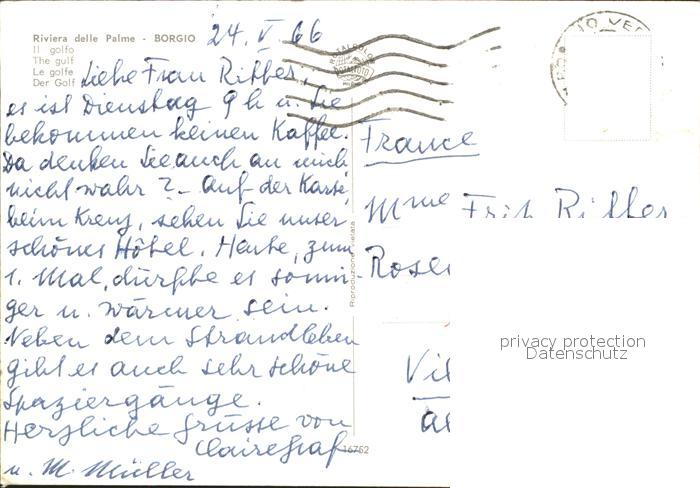 Riviera delle Palme - BORGIO
Il golfo
The gulf
Le golfe
Der Golf
24. V. 66
Liebe Frau Ritter,
es ist Dienstag 9 h u. Sie
bekommen keinen Kaffee.
Da denken Sie auch an mich
nicht wahr? - Auf der Karte,
beim Kreuz, sehen Sie unser
schönes Hôtel. Heute, zum
1. Mal, dürfte es sonni-
ger u. wärmer sein.
Neben dem Strandleben
gibt es auch sehr schöne
Spaziergänge.
Herzliche Grüsse von
Claire Graf
u. M. Müller
Riproduzione vietata
16752
France
Mme Frit Ritter
Rose
Vil
privacy protection
Datenschutz